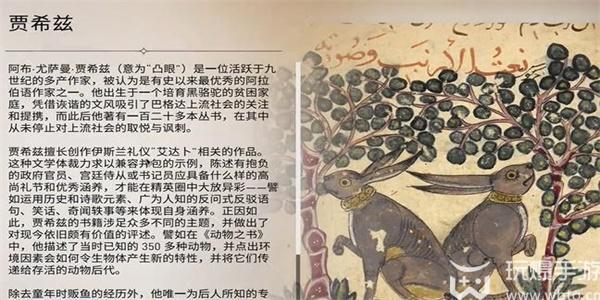 贾希兹
阿布·尤萨曼·贾希兹（意为“凸眼”）是一位活跃于九
世纪的多产作家，被认为是有史以来最优秀的阿拉
伯语作家之一。他出生于一个培育黑骆驼的贫困家
庭，凭借诙谐的文风吸引了巴格达上流社会的关注
和提携，而此后他著有一百二十多本丛书，在其中
从未停止对上流社会的取悦与讽刺。
贾希兹擅长创作伊斯兰礼仪“艾达卜”相关的作品。
这种文学体裁力求以兼容并包的示例，陈述有抱负
的政府官员、宫廷侍从或书记员应具备什么样的高
尚礼节和优秀涵养，才能在精英圈中大放异彩——譬
如运用历史和诗歌元素、广为人知的反问式反驳语
句、笑话、奇闻轶事等来体现自身涵养。正因如
此，贾希兹的书籍涉足众多不同的主题，并做出了
对现今依旧颇有价值的评述。譬如在《动物之书》
中，他描述了当时已知的 350 多种动物，并点出环
境因素会如何令生物体产生新的特性，并将它们传
递给存活的动物后代。
除去童年时贩鱼的经历外，他唯一为后人所知的专
玩爆手游